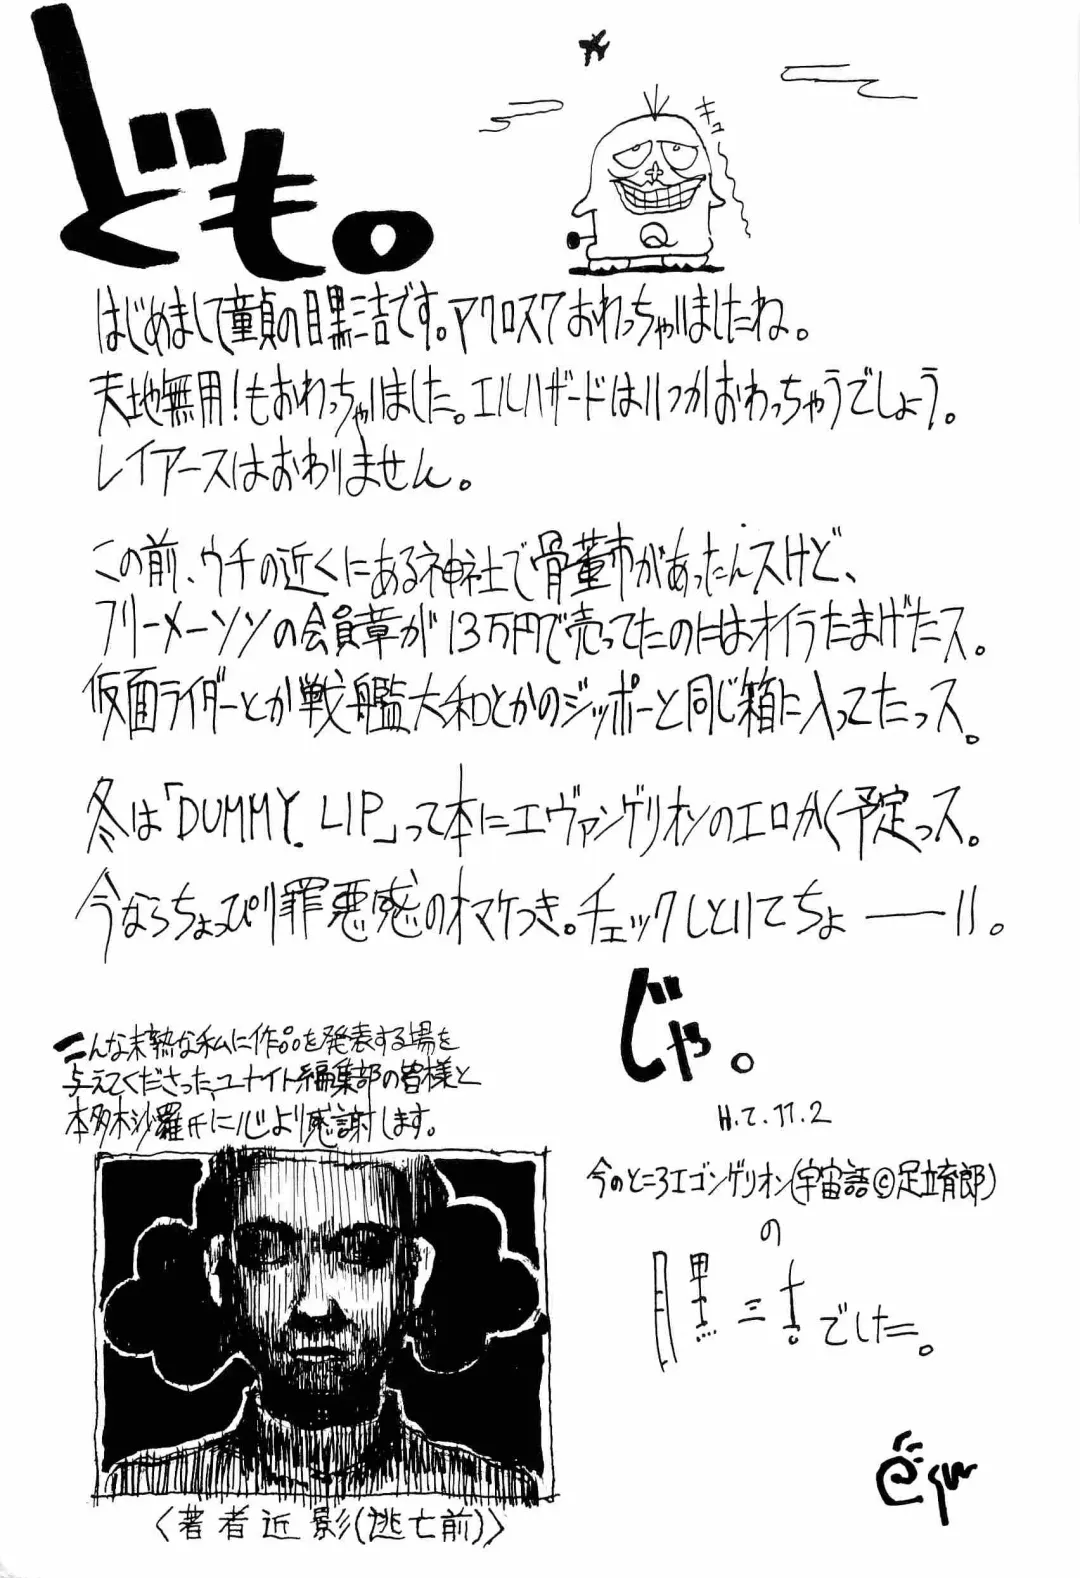 ども。
キュ
はじめまして童貞の目黒三吉です。マクロス7おわっちゃいましたね。
天地無用!もおわっちゃいました。エルハザードはいつかおわっちゃうでしょう。
レイアースはおわりません。
この前、ウチの近くにある神社で骨董市があったんスけど、
フリーメーソンの会員章が13万円で売ってたのにはオイラたまげたス。
仮面ライダーとか戦艦大和とかのジッポーと同じ箱に入ってたっス。
冬は「DUMMY. LIP」って本にエヴァンゲリオンのエロかく予定っス。
今ならちょっぴり罪悪感のオマケつき。チェックしといてちょーーい。
じゃ。
こんな未熟な私に作品を発表する場を
与えてくださった、ユナイト編集部の皆様と
本多木沙羅氏に心より感謝します。
H.7.11.2
今のところエゴンゲリオン(宇宙語©足立育郎)
の
目黒三吉でした。
〈著者近影(逃亡前)〉